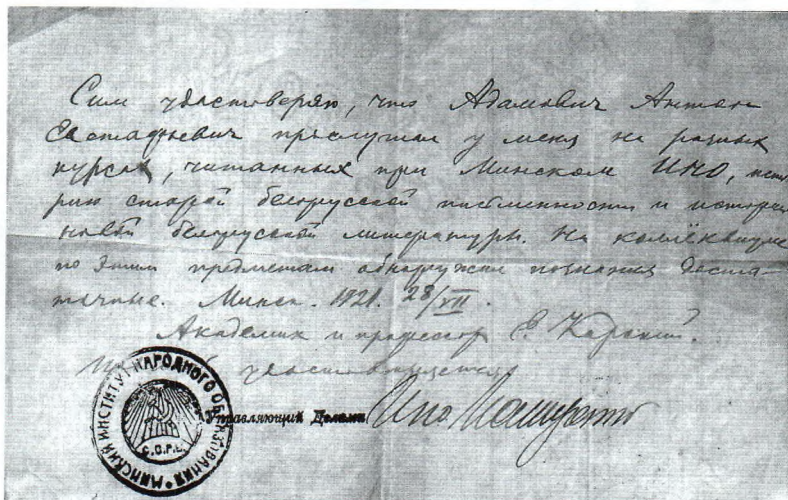 Сим удостоверяю, что Адамович Антон
Евстафьевич прослушал у меня на разных
курсах, читанных при Минском ИНО, исто
рию старой белорусской письменности и историю
новой белорусской литературы. На коллёквиуме
по этим предметам обнаружил познания доста-
точные. Минск. 1921. 28/VII.
Академик и профессор Е. Карский.
удостоверяется
Управляющий Делами Ино
МИНСКИЙ ИНСТИТУТ НАРОДНОГО ОБРАЗОВАНИЯ
С.С.Р.Б.